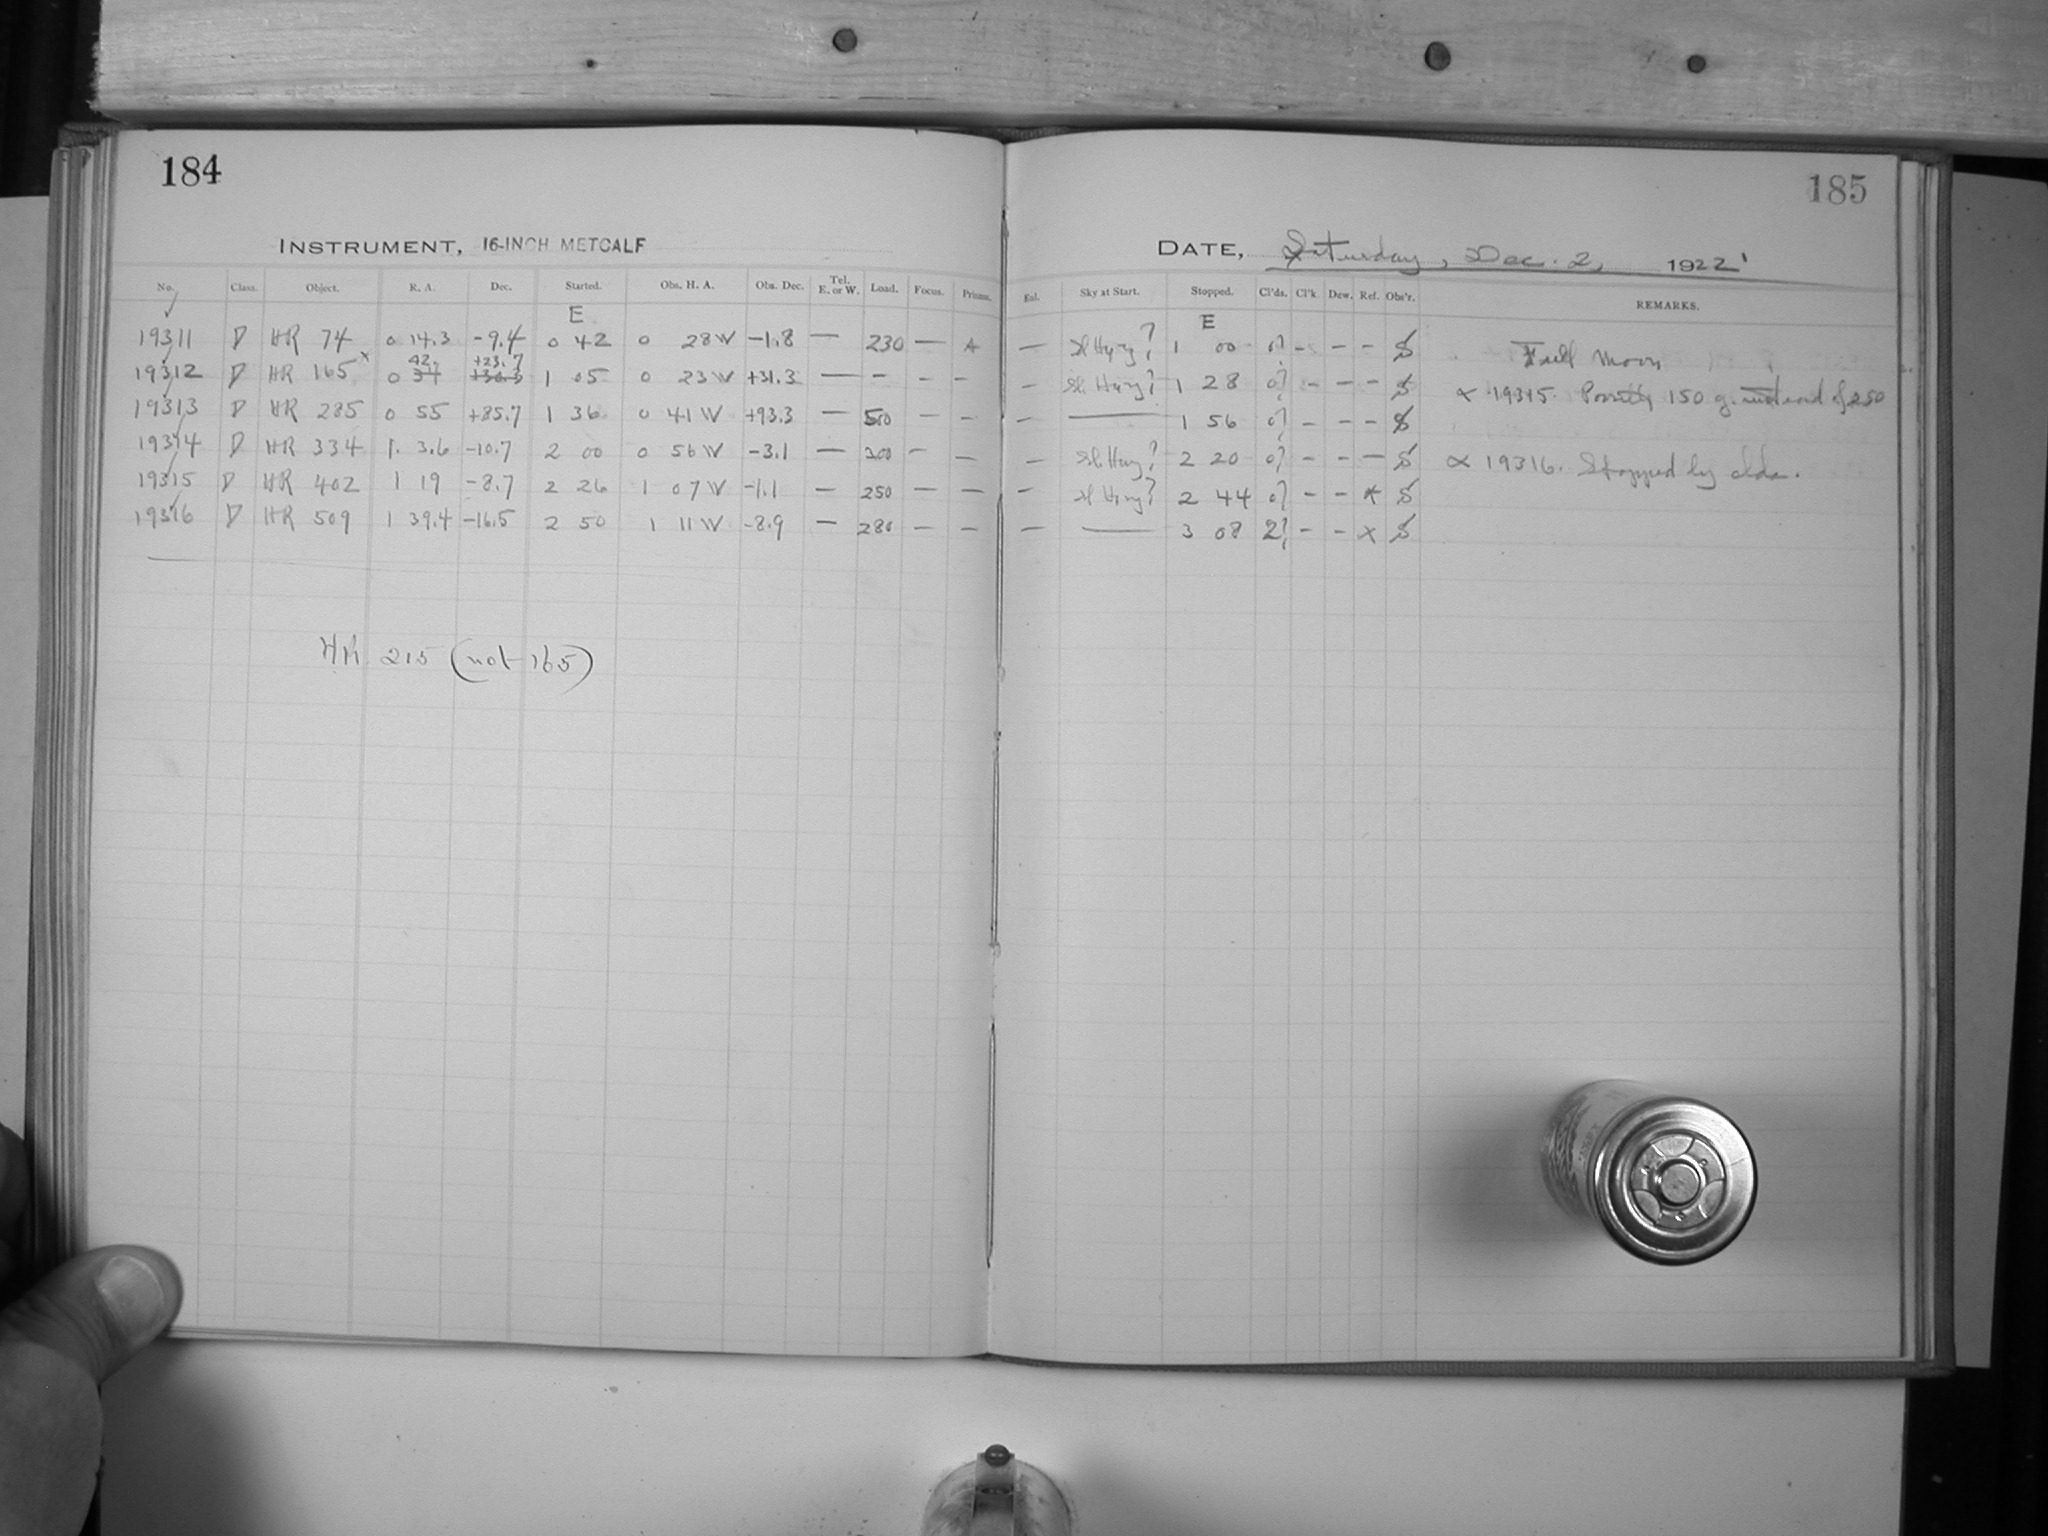 184
INSTRUMENT, 16-INCH METCALF
No. Class. Object. R. A. Dec. Started. Obs. H. A. Obs. Dec. Tel. E. or W. Load. Focus. Prisms.
E
19311 D HR 74 0 14.3 -9.4 0 42 0 28 W -1.8 — 230 —
42.7 +23.7
19312 D HR 165 x 0 37 +30.3 1 05 0 23 W +31.3 — - - -
19313 D HR 285 0 55 +85.7 1 36 0 41 W +93.3 — 50 - -
19314 D HR 334 1. 3.6 -10.7 2 00 0 56 W -3.1 — 200 - -
19315 D HR 402 1 19 -8.7 2 26 1 07 W -1.1 — 250 — —
19316 D HR 509 1 39.4 -16.5 2 50 1 11 W -8.9 — 280 — —
HR 215 (not 165)
185
DATE, Saturday, Dec. 2, 1922
Exl. Sky at Start. Stopped. Cl'ds. Cl'k. Dew. Ref. Obs'r. REMARKS.
E
— Sl. Hazy? 1 00 0? - - - S
Full Moon
— Sl. Hazy? 1 28 0? - - - S
α 19315. Possibly 150 g. instead of 250
— — 1 56 0? - - - S
— Sl. Hazy? 2 20 0? - - — S
α 19316. Stopped by clds.
— Sl. Hazy? 2 44 0? - - * S
— — 3 08 2? - - x S